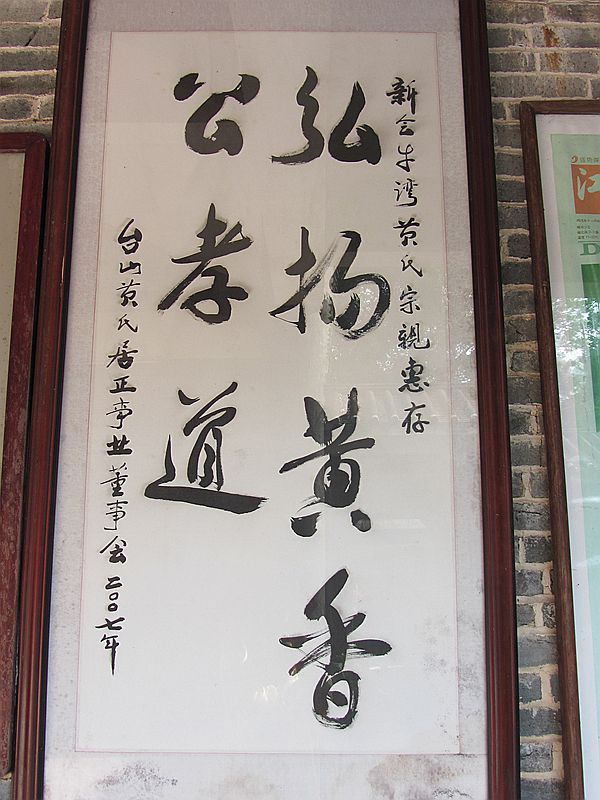 新会牛湾黄氏宗親惠存
弘扬黄香
公孝道
台山黄氏居正事业董事会二〇〇七年
江
D